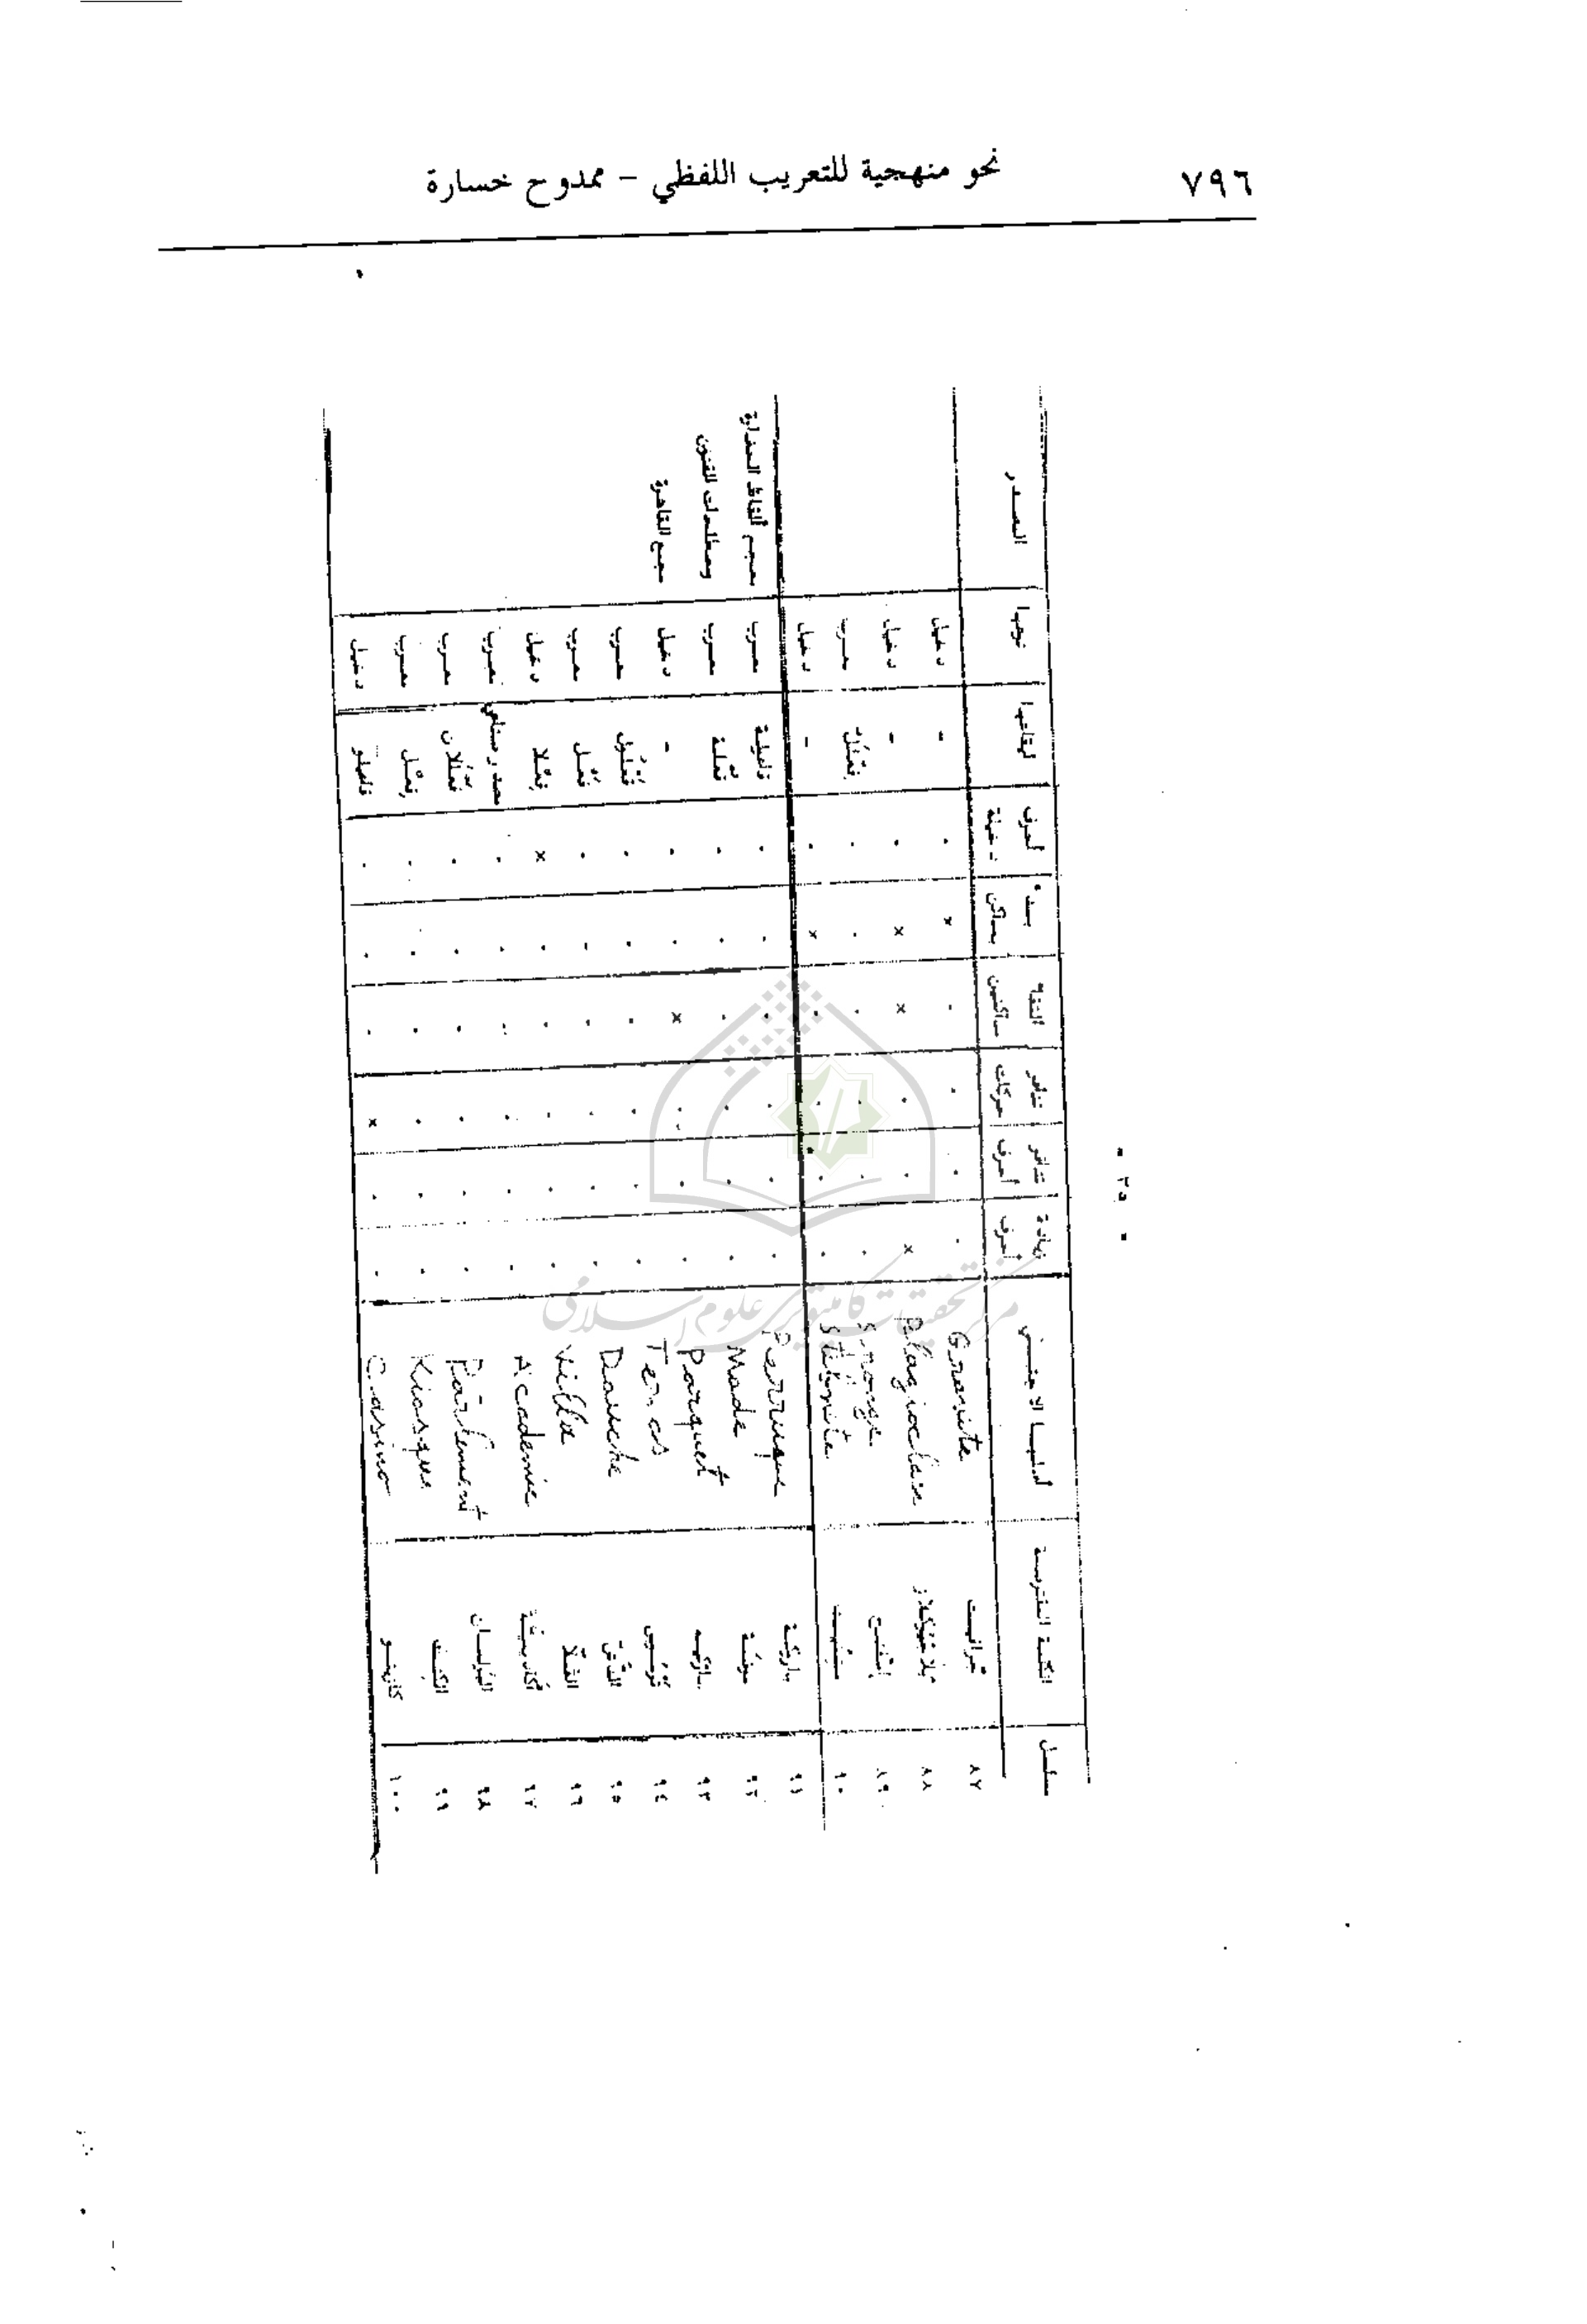 ٧٩٦ نحو منهجية للتعريب اللفظي – ممدوح خسارة
- ٢٥ -
مسلسل الكلمة المقترحة أصلها الاجنبي زيادة أحرف تنافر أحرف تنافر حركات التقاء ساكنين بدء بساكن أحرف دخيلة ايقاعها نوعها المصدر
٨٧ جرانيت Granite . . . . × . - دخيل
٨٨ Plagioclase × . . × × . - دخيل
٨٩ . . . . . . معرب
٩٠ Stibnite . . . . × . - دخيل
٩١ باروكة Perruque . . . . . . معرب معجم ألفاظ الحضارة
٩٢ موضة Mode . . . . . . فعلة معرب ومصطلحات الفنون
٩٣ باركيه Parquet . . . × . . - دخيل مجمع القاهرة
٩٤ . . . . . . معرب
٩٥ الدش Douche . . . . . . فعل معرب
٩٦ الفلا Villa . . . . . × فعلا دخيل
٩٧ أكاديمية Academie . . . . . . مصدر صناعي معرب
٩٨ البرلمان Parlement . . . . . . فعللان معرب
٩٩ الكشك Kiosque . . . . . . فعل معرب
١٠٠ كازينو Casino . . × . . . دخيل
مركز تحقیقات کامپیوتری علوم اسلامی